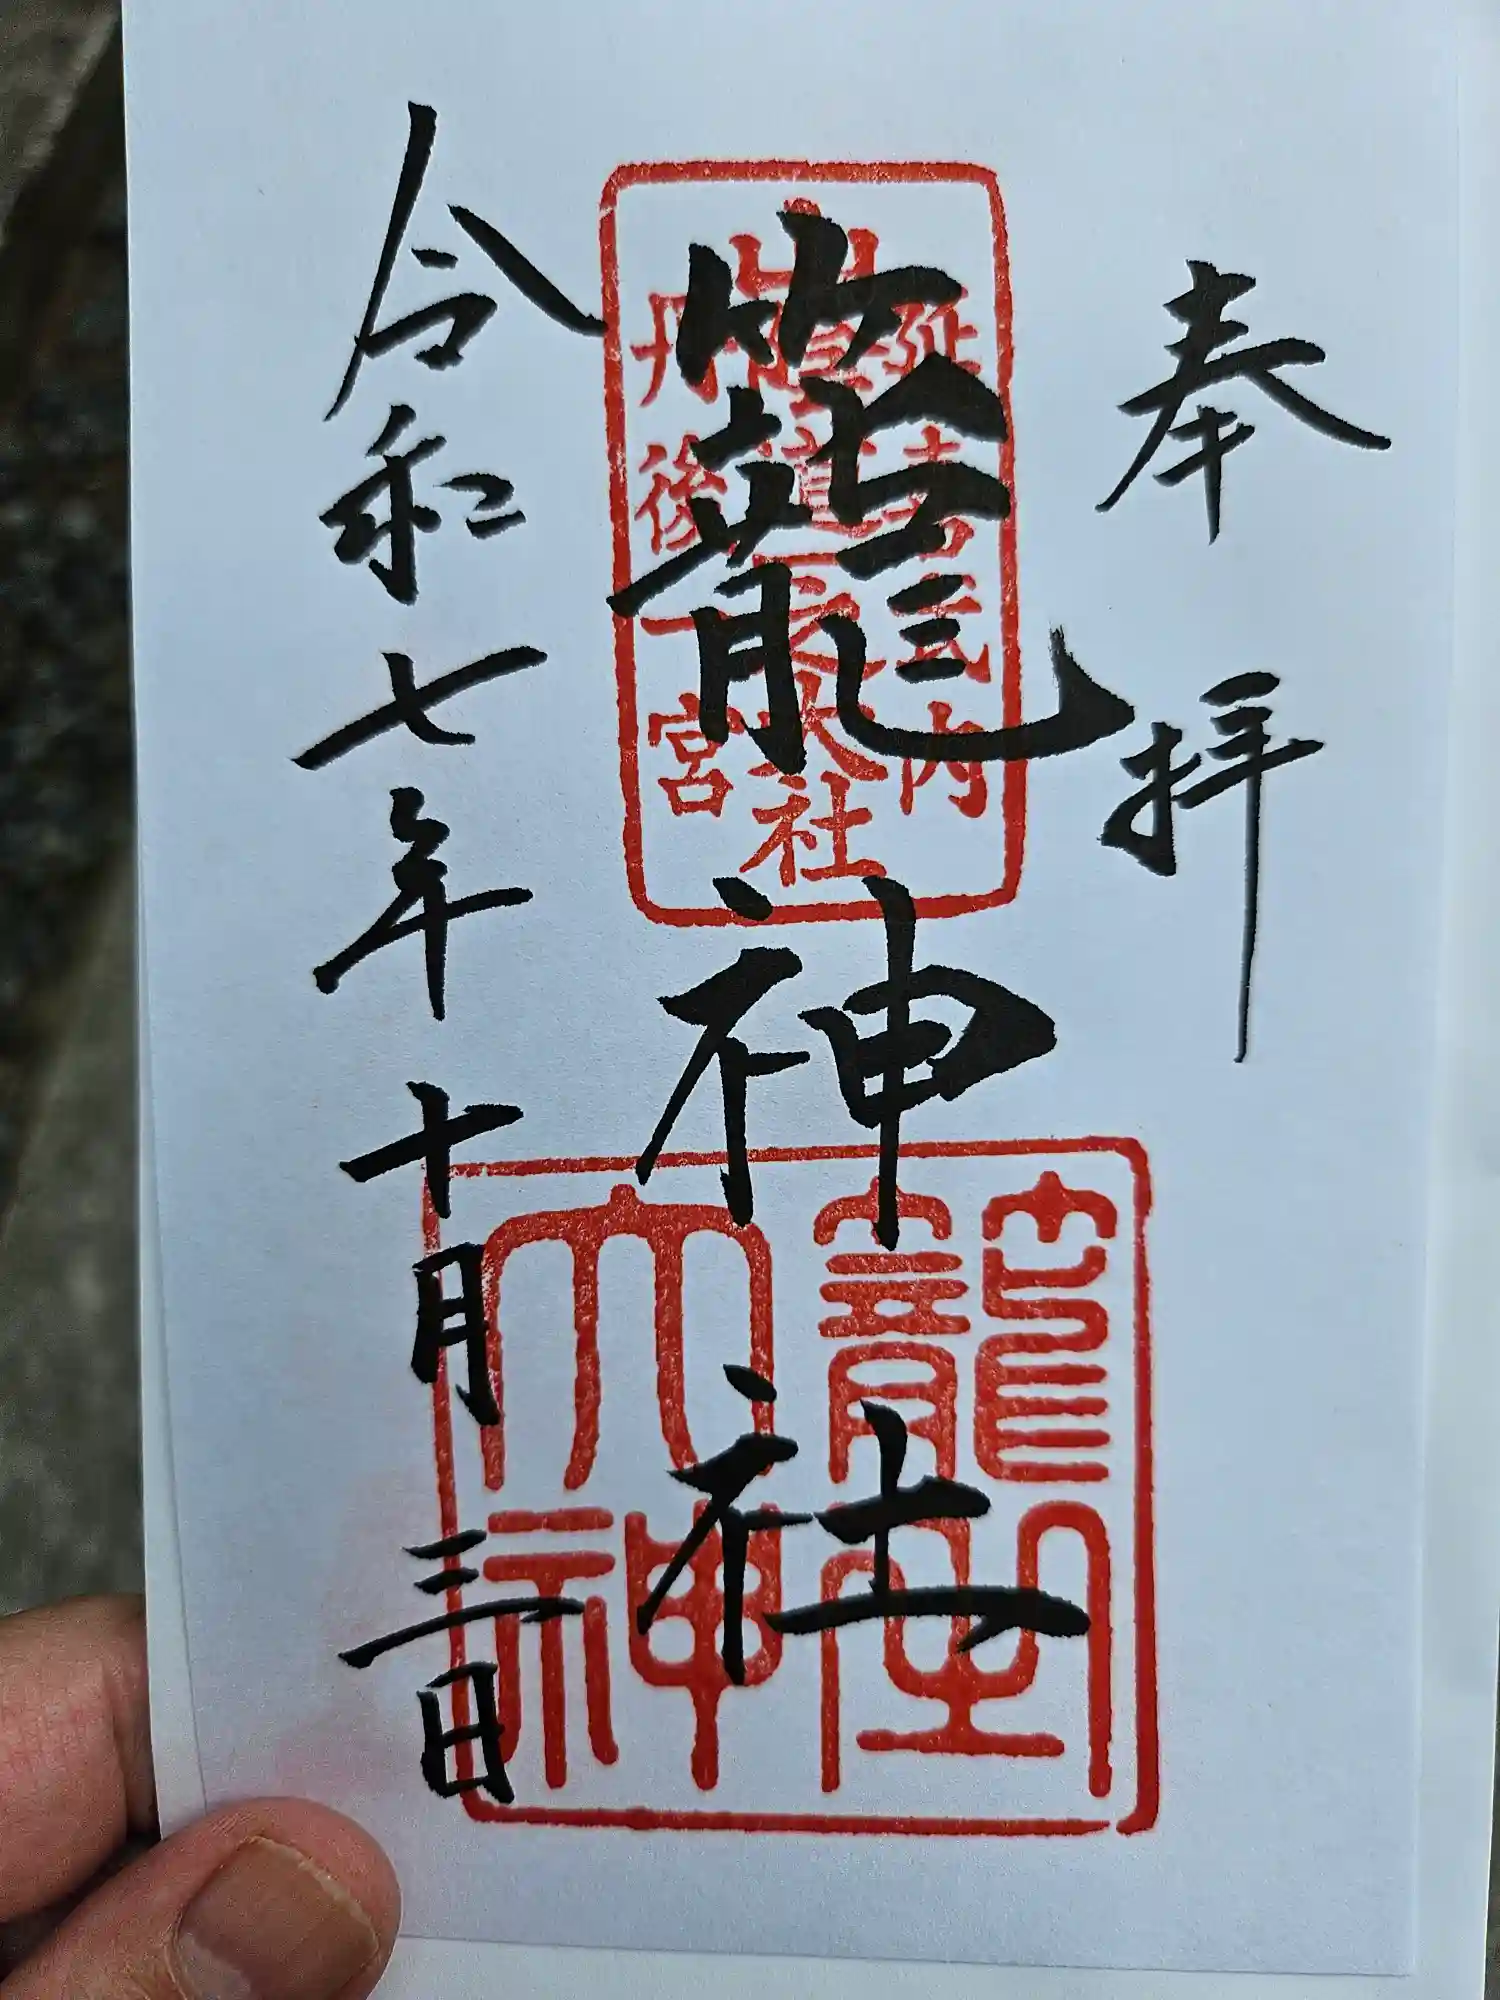 奉拝
延喜式内
山陰道一之大社
丹後一宮
籠神社
令和七年十月三日